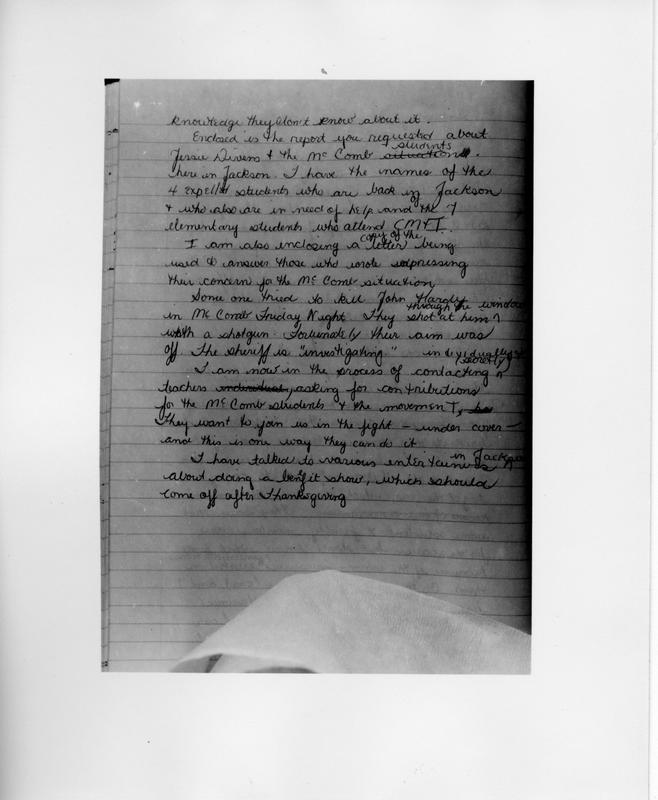 knowledge they don't know about it.
Enclosed is the report you requested about
Jessie Divens & the Mc Comb situation students.
here in Jackson. I have the names of the
4 expelled students who are back in Jackson
& who also are in need of help and the 7
elementary students who attend CM&I.
I am also inclosing a copy of the letter being
used to answer those who wrote expressing
their concern for the Mc Comb situation.
Some one tried to kill John Hardy
in Mc Comb Friday Night. They shot at him through the window
with a shotgun. Fortunately their aim was
off. The sheriff is "investigating."
I am now in the process of contacting individually (secretly)
teachers individual, asking for contributions
for the Mc Comb students & the movement,
They want to join us in the fight – under cover –
and this is one way they can do it
I have talked to various entertainers in Jackson
about doing a benefit show, which should
come off after Thanksgiving